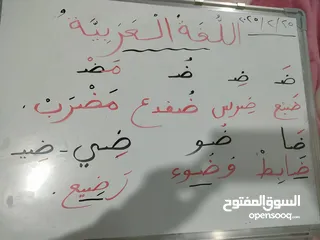 ٢٠٢٥/٢/٢٥
اللُّغَةُ الْعَرَبِيَّةُ
ضَ ضِ ضُ مَضْ
ضَبُع ضِرس ضُفدع مَضْرَب.
ضَا ضُو ضِي - ضيـ
ضَابِطْ وضُوء رَضِيع.
السوق المفتوح
opensooq.com